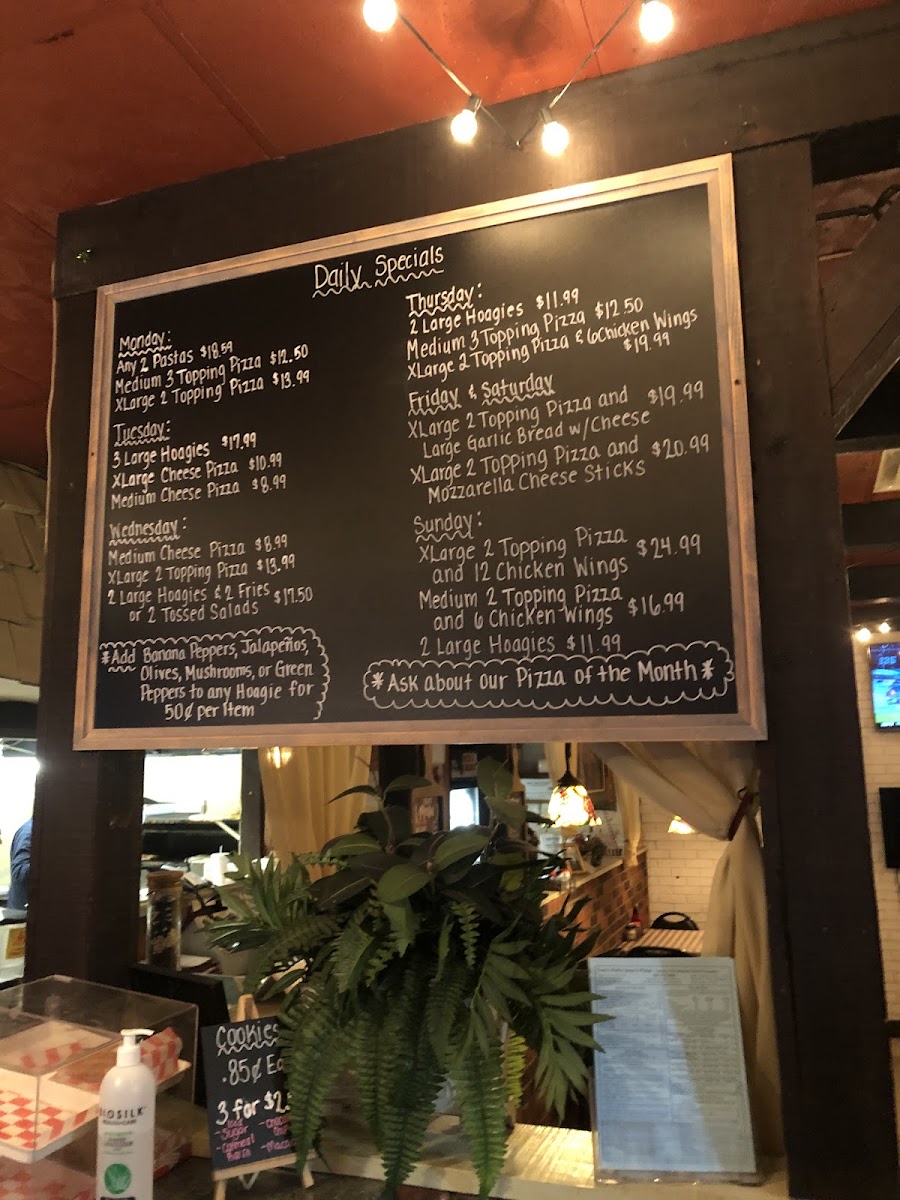 Daily Specials
Monday:
Any 2 Pastas $18.59
Medium 3 Topping Pizza $12.50
XLarge 2 Topping Pizza $13.99
Tuesday:
3 Large Hoagies $17.99
XLarge Cheese Pizza $10.99
Medium Cheese Pizza $8.99
Wednesday:
Medium Cheese Pizza $8.99
XLarge 2 Topping Pizza $13.99
2 Large Hoagies & 2 Fries
or 2 Tossed Salads $17.50
*Add Banana Peppers, Jalapeños,
Olives, Mushrooms, or Green
Peppers to any Hoagie for
50¢ per Item
Thursday:
2 Large Hoagies $11.99
Medium 3 Topping Pizza $12.50
XLarge 2 Topping Pizza & 6 Chicken Wings
$19.99
Friday & Saturday
XLarge 2 Topping Pizza and $19.99
Large Garlic Bread w/Cheese
XLarge 2 Topping Pizza and $20.99
Mozzarella Cheese Sticks
Sunday:
XLarge 2 Topping Pizza
and 12 Chicken Wings $24.99
Medium 2 Topping Pizza
and 6 Chicken Wings $16.99
2 Large Hoagies $11.99
*Ask about our Pizza of the Month*
Cookies
.85¢ Ea
3 for $2.
Sugar
-Oatmeal
Raisin